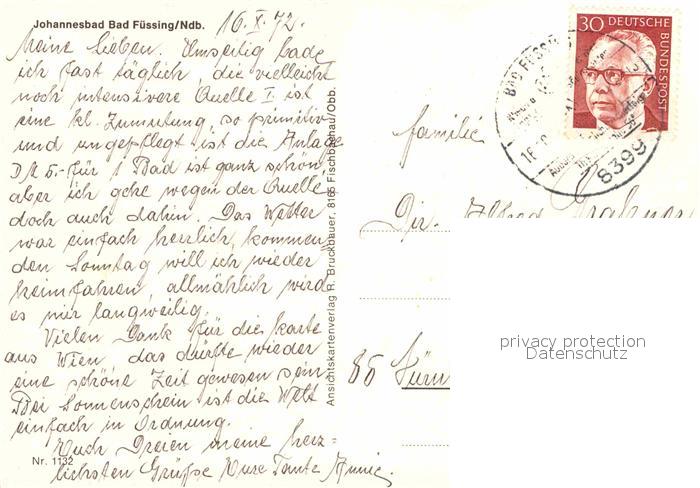 Johannesbad Bad Füssing/Ndb.
16.X.72.
Meine Lieben. Umseitig bade
ich fast täglich, die vielleicht
noch intensivere Quelle I. ist
eine kl. Zumutung so primitiv
und ungepflegt ist die Anlage
DM 5.- für 1 Bad ist ganz schön
aber ich gehe wegen der Quelle
doch auch dahin. Das Wetter
war einfach herrlich, kommen=
den Sonntag will ich wieder
heimfahren, allmählich wird
es mir langweilig.
Vielen Dank für die Karte
aus Wien, das dürfte wieder
eine schöne Zeit gewesen sein
Bei Sonnenschein ist die Welt
einfach in Ordnung.
Euch Dreien meine herz=
lichsten Grüße Eure Tante Annie.
Nr. 1132
Ansichtskartenverlag R. Bruckbauer, 8165 Fischbachau/Obb.
30 DEUTSCHE BUNDESPOST
BAD FÜSSI
8399
Familie
Dir. Alfred
85 Nürn
privacy protection
Datenschutz